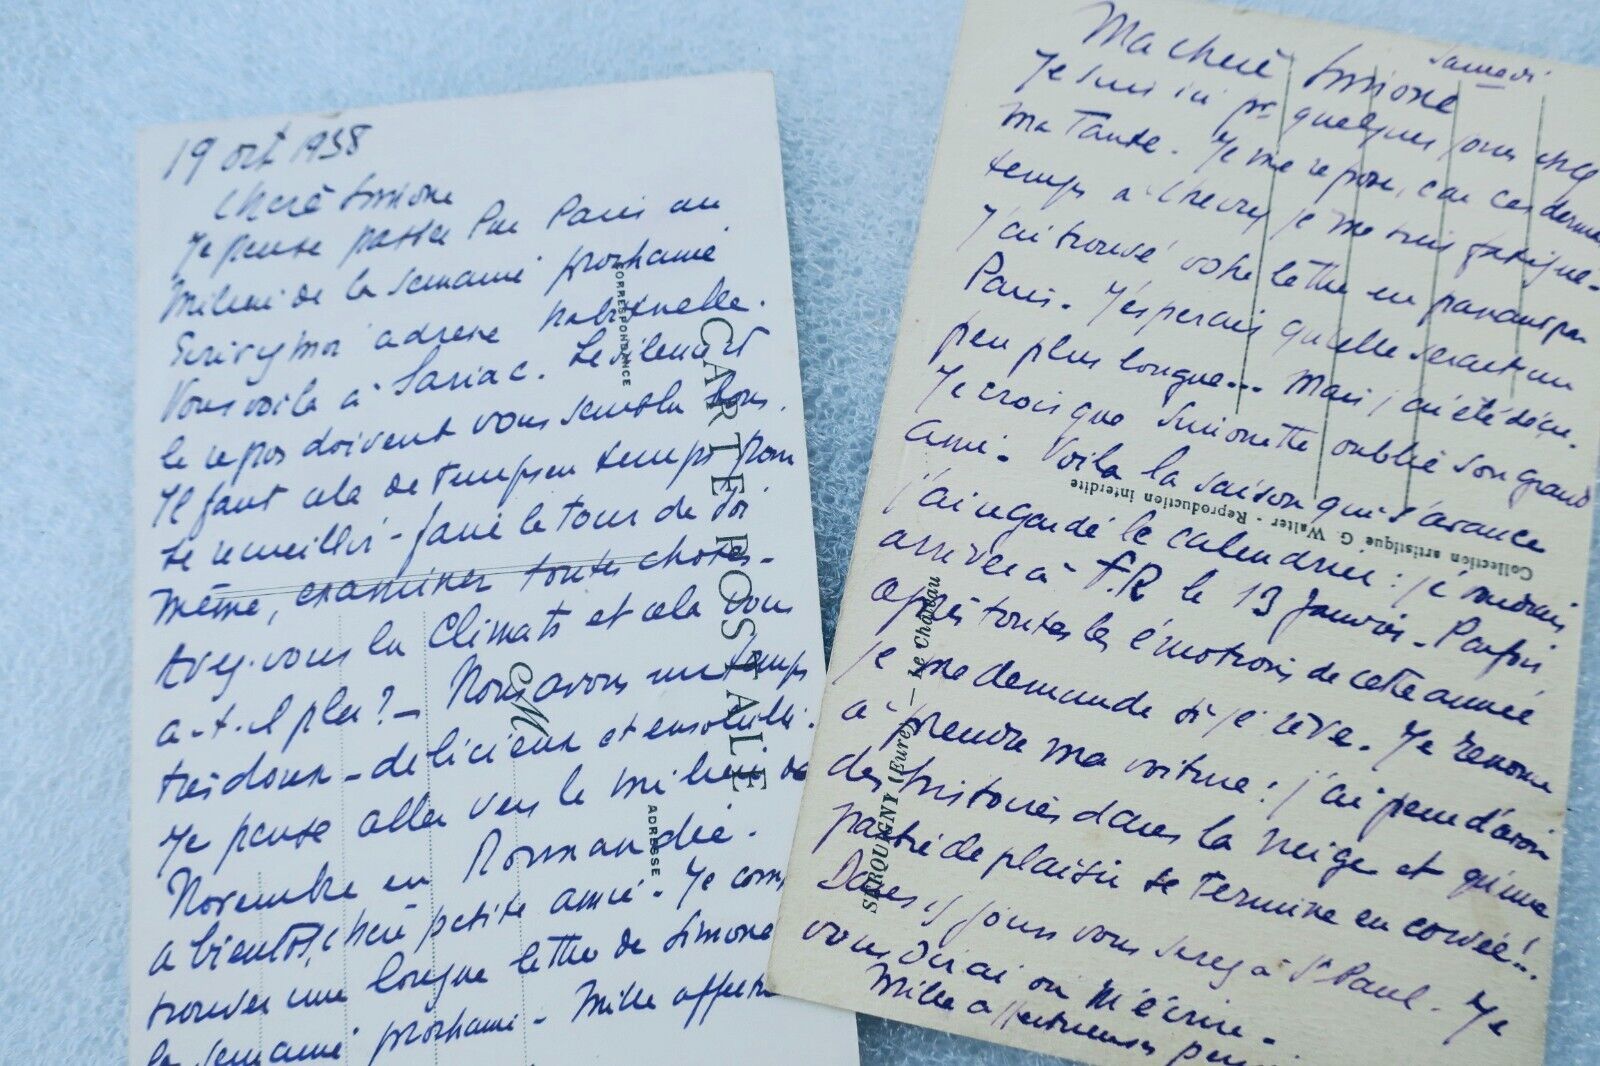 19 oct 1938
Chère Simone
Je pense passer par Paris au
milieu de la semaine prochaine
Ecrivez moi adresse habituelle.
Vous voilà à Sariac. Le silence et
le repos doivent vous sembler bons.
Il faut cela de temps en temps pour
se recueillir - faire le tour de soi
même, examiner toutes choses -
Avez-vous lu Climats et cela vous
a-t-il plu ? - Nous avons un temps
très doux - délicieux et ensoleillé.
Je pense aller vers le milieu de
Novembre en Normandie.
A bientôt, chère petite amie. Je compte
trouver une longue lettre de Simone
la semaine prochaine - Mille affectu
CORRESPONDANCE
CARTE POSTALE
CM
ADRESSE
Samedi
Ma chère Simone
Je suis ici pr quelques jours chez
ma Tante. Je me repose, car ces derniers
temps à Chevry je me suis fatigué -
J'ai trouvé votre lettre en passant par
Paris - J'espérais qu'elle serait un
peu plus longue... Mais j'ai été déçu.
Je crois que Simonette oublie son grand
ami - Voilà la saison qui s'avance
j'ai regardé le calendrier : je
arriver à F.R le 13 Janvier - Parfois
après toutes les émotions de cette année
je me demande si je rêve. Je renonce
à prendre ma voiture : j'ai peur d'avoir
des histoires dans la neige et qu'une
partie de plaisir se termine en corvée !..
Dans 15 jours vous serez à St Paul. Je
vous dirai où m'écrire -
Mille affectueuses pensées
Collection artistique G. Walter - Reproduction interdite
SERQUIGNY (Eure) — Le Château